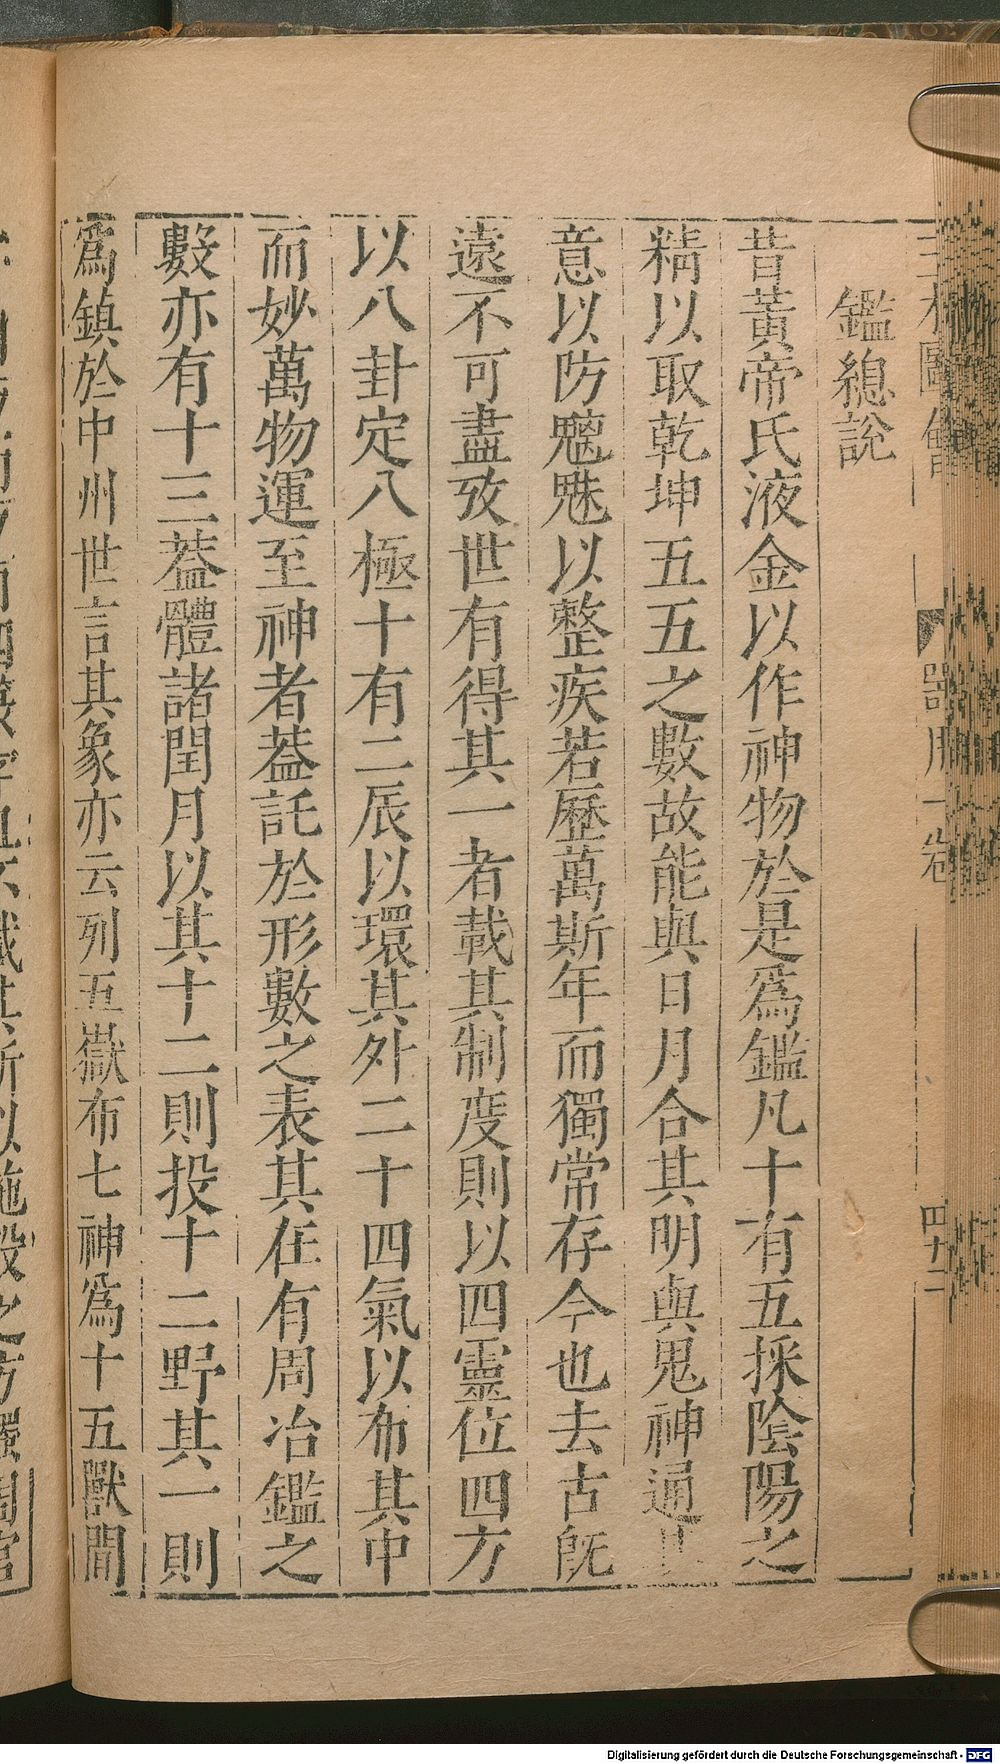 鑑總說
昔黃帝氏液金以作神物於是爲鑑凡十有五採陰陽之
精以取乾坤五五之數故能與日月合其明與鬼神通其
意以防魑魅以整疾若歷萬斯年而獨常存今也去古旣
遠不可盡攷世有得其一者載其制度則以四靈位四方
以八卦定八極十有二辰以環其外二十四氣以布其中
而妙萬物運至神者葢託於形數之表其在有周冶鑑之
數亦有十三葢體諸閏月以其十二則投十二野其一則
爲鎮於中州世言其象亦云列五嶽布七神爲十五獸間
器用一卷
四十二
Digitalisierung gefördert durch die Deutsche Forschungsgemeinschaft - DFG